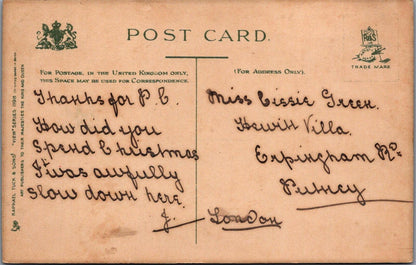 POST CARD.
FOR POSTAGE, IN THE UNITED KINGDOM ONLY,
THIS SPACE MAY BE USED FOR CORRESPONDENCE.
(FOR ADDRESS ONLY).
TRADE MARK
Thanks for P.C.
How did you
Spend Christmas
It was awfully
slow down here.
J.
Miss Cissie Green.
Hewitt Villa.
Erpingham Rd
Putney
London
RAPHAEL TUCK & SONS'
ART PUBLISHERS TO THEIR MAJESTIES THE KING AND QUEEN